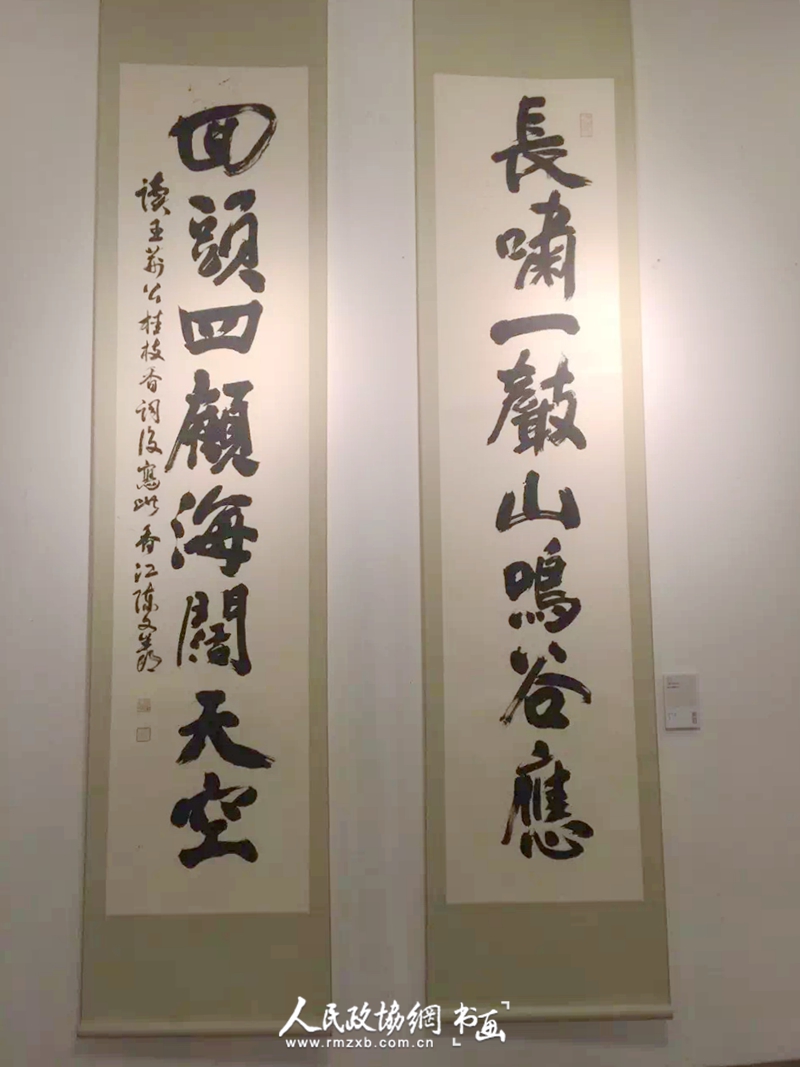 長嘯一聲山鳴谷應
回頭四顧海闊天空
讀王荊公桂枝香詞後寫此香江陳文巖
人民政協網 书画
www.rmzxb.com.cn